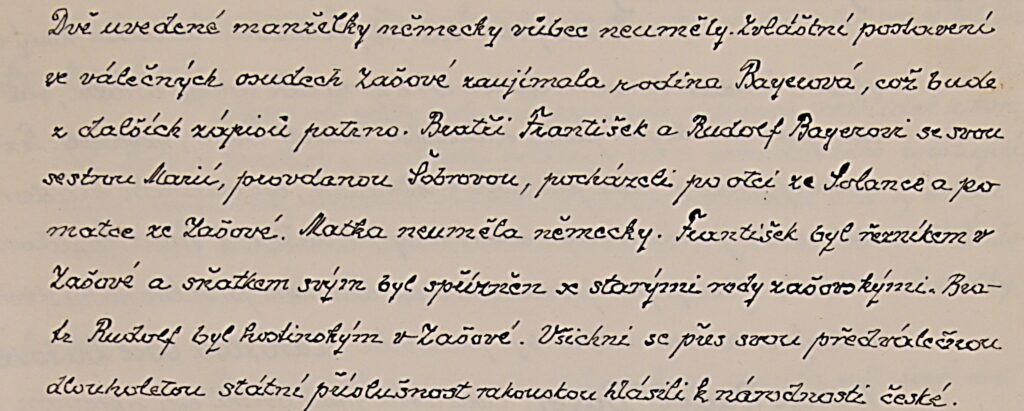 Dvě uvedené manželky německy vůbec neuměly. Zvláštní postavení
ve válečných osudech Zašové zaujímala rodina Bayerová, což bude
z dalších zápisů patrno. Bratři František a Rudolf Bayerovi se svou
sestrou Marií, provdanou Šobrovou, pocházeli po otci ze Solance a po
matce ze Zašové. Matka neuměla německy. František byl řezníkem v
Zašové a sňatkem svým byl spřízněn se starými rody zašovskými. Bra-
tr Rudolf byl hodinským v Zašové. Všichni se přes svou předválečnou
dlouholetou státní příslušnost rakouskou hlásili k národnosti české.